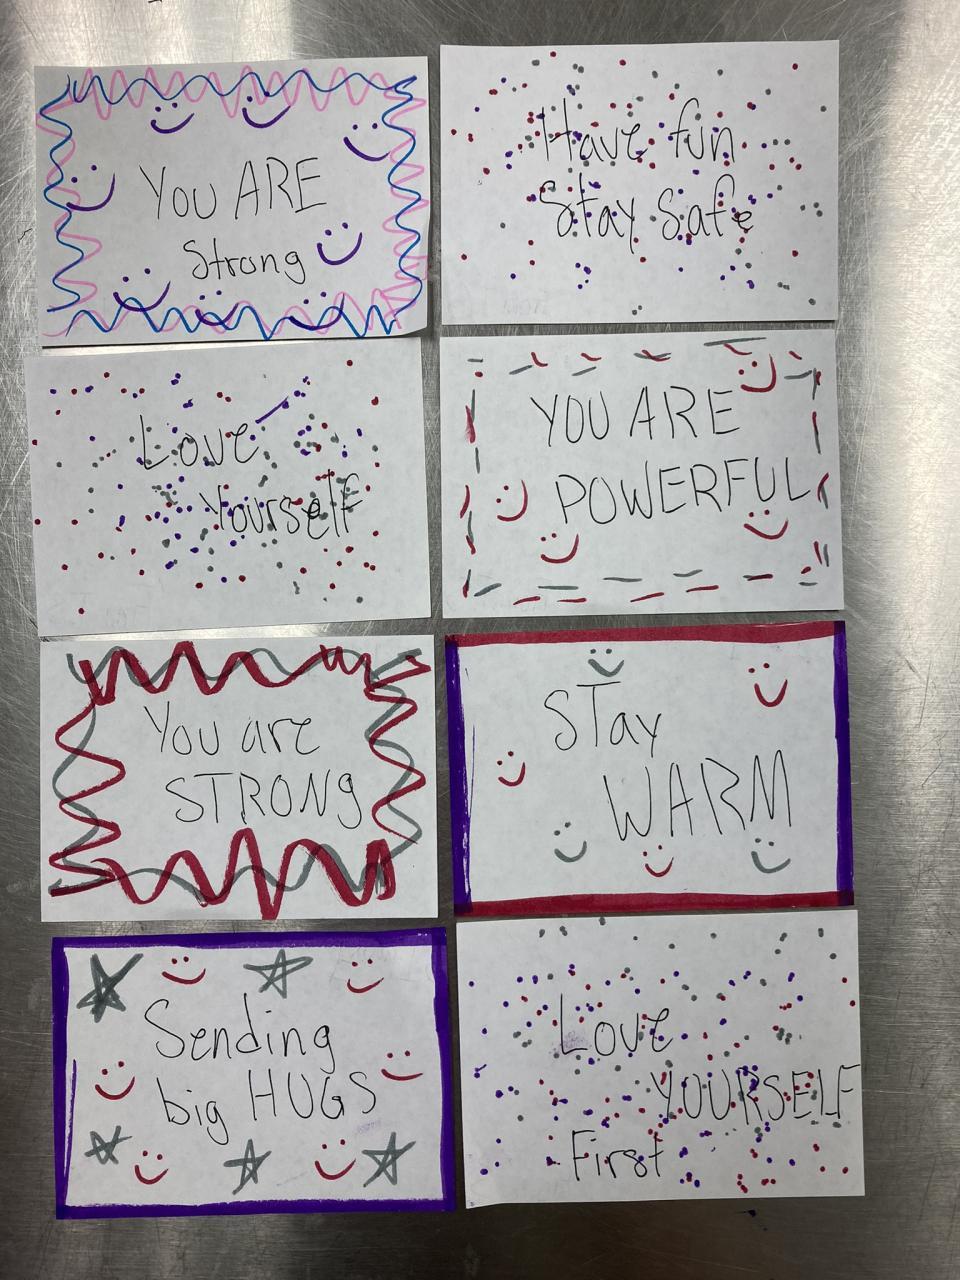 YOU ARE
Strong
Have fun
Stay Safe
Love
Yourself
YOU ARE
POWERFUL
You are
STRONG
STay
WARM
Sending
big HUGS
Love
YOURSELF
First